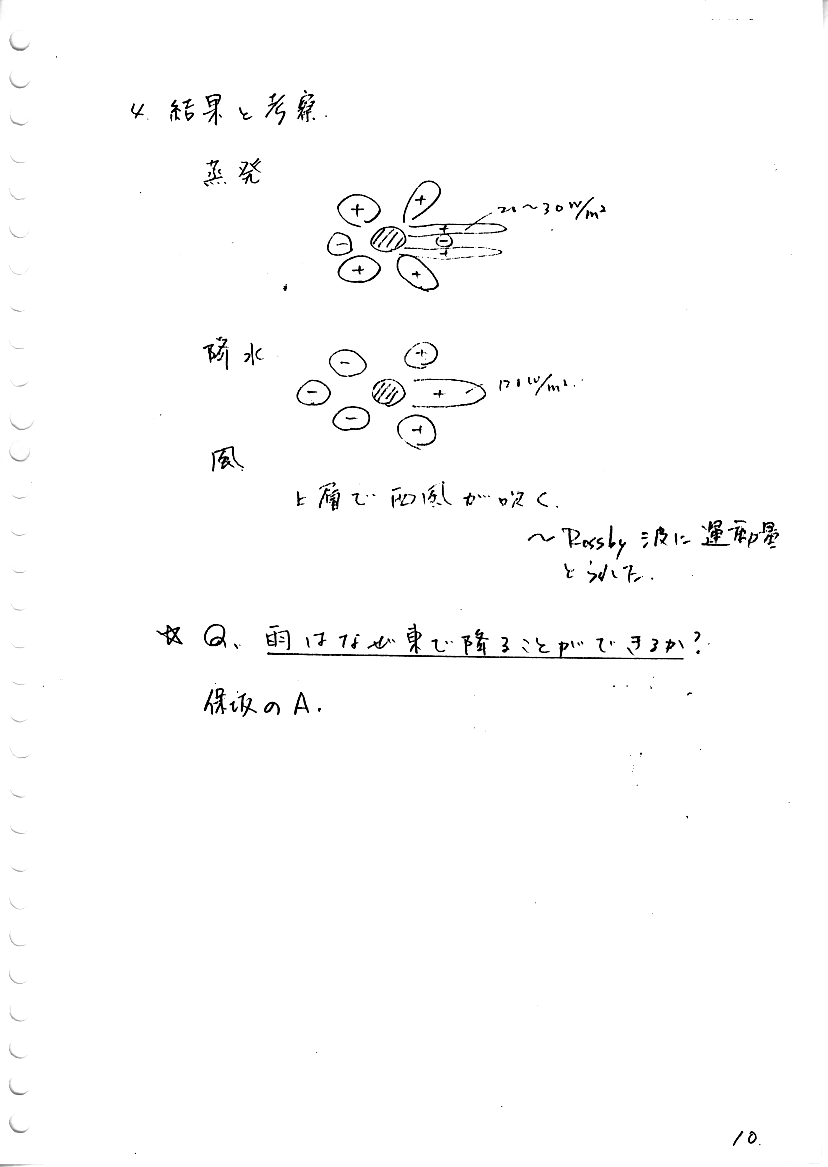 4. 結果と考察.
蒸発
+ +
20~30W/m²
+
- -
+
+ +
降水
- +
- + 120W/m²
- +
風
上層で西風が吹く.
~Rossby波に運動量
とられた.
☆ Q. 雨はなぜ東で降ることができるか?
保坂のA.
10.